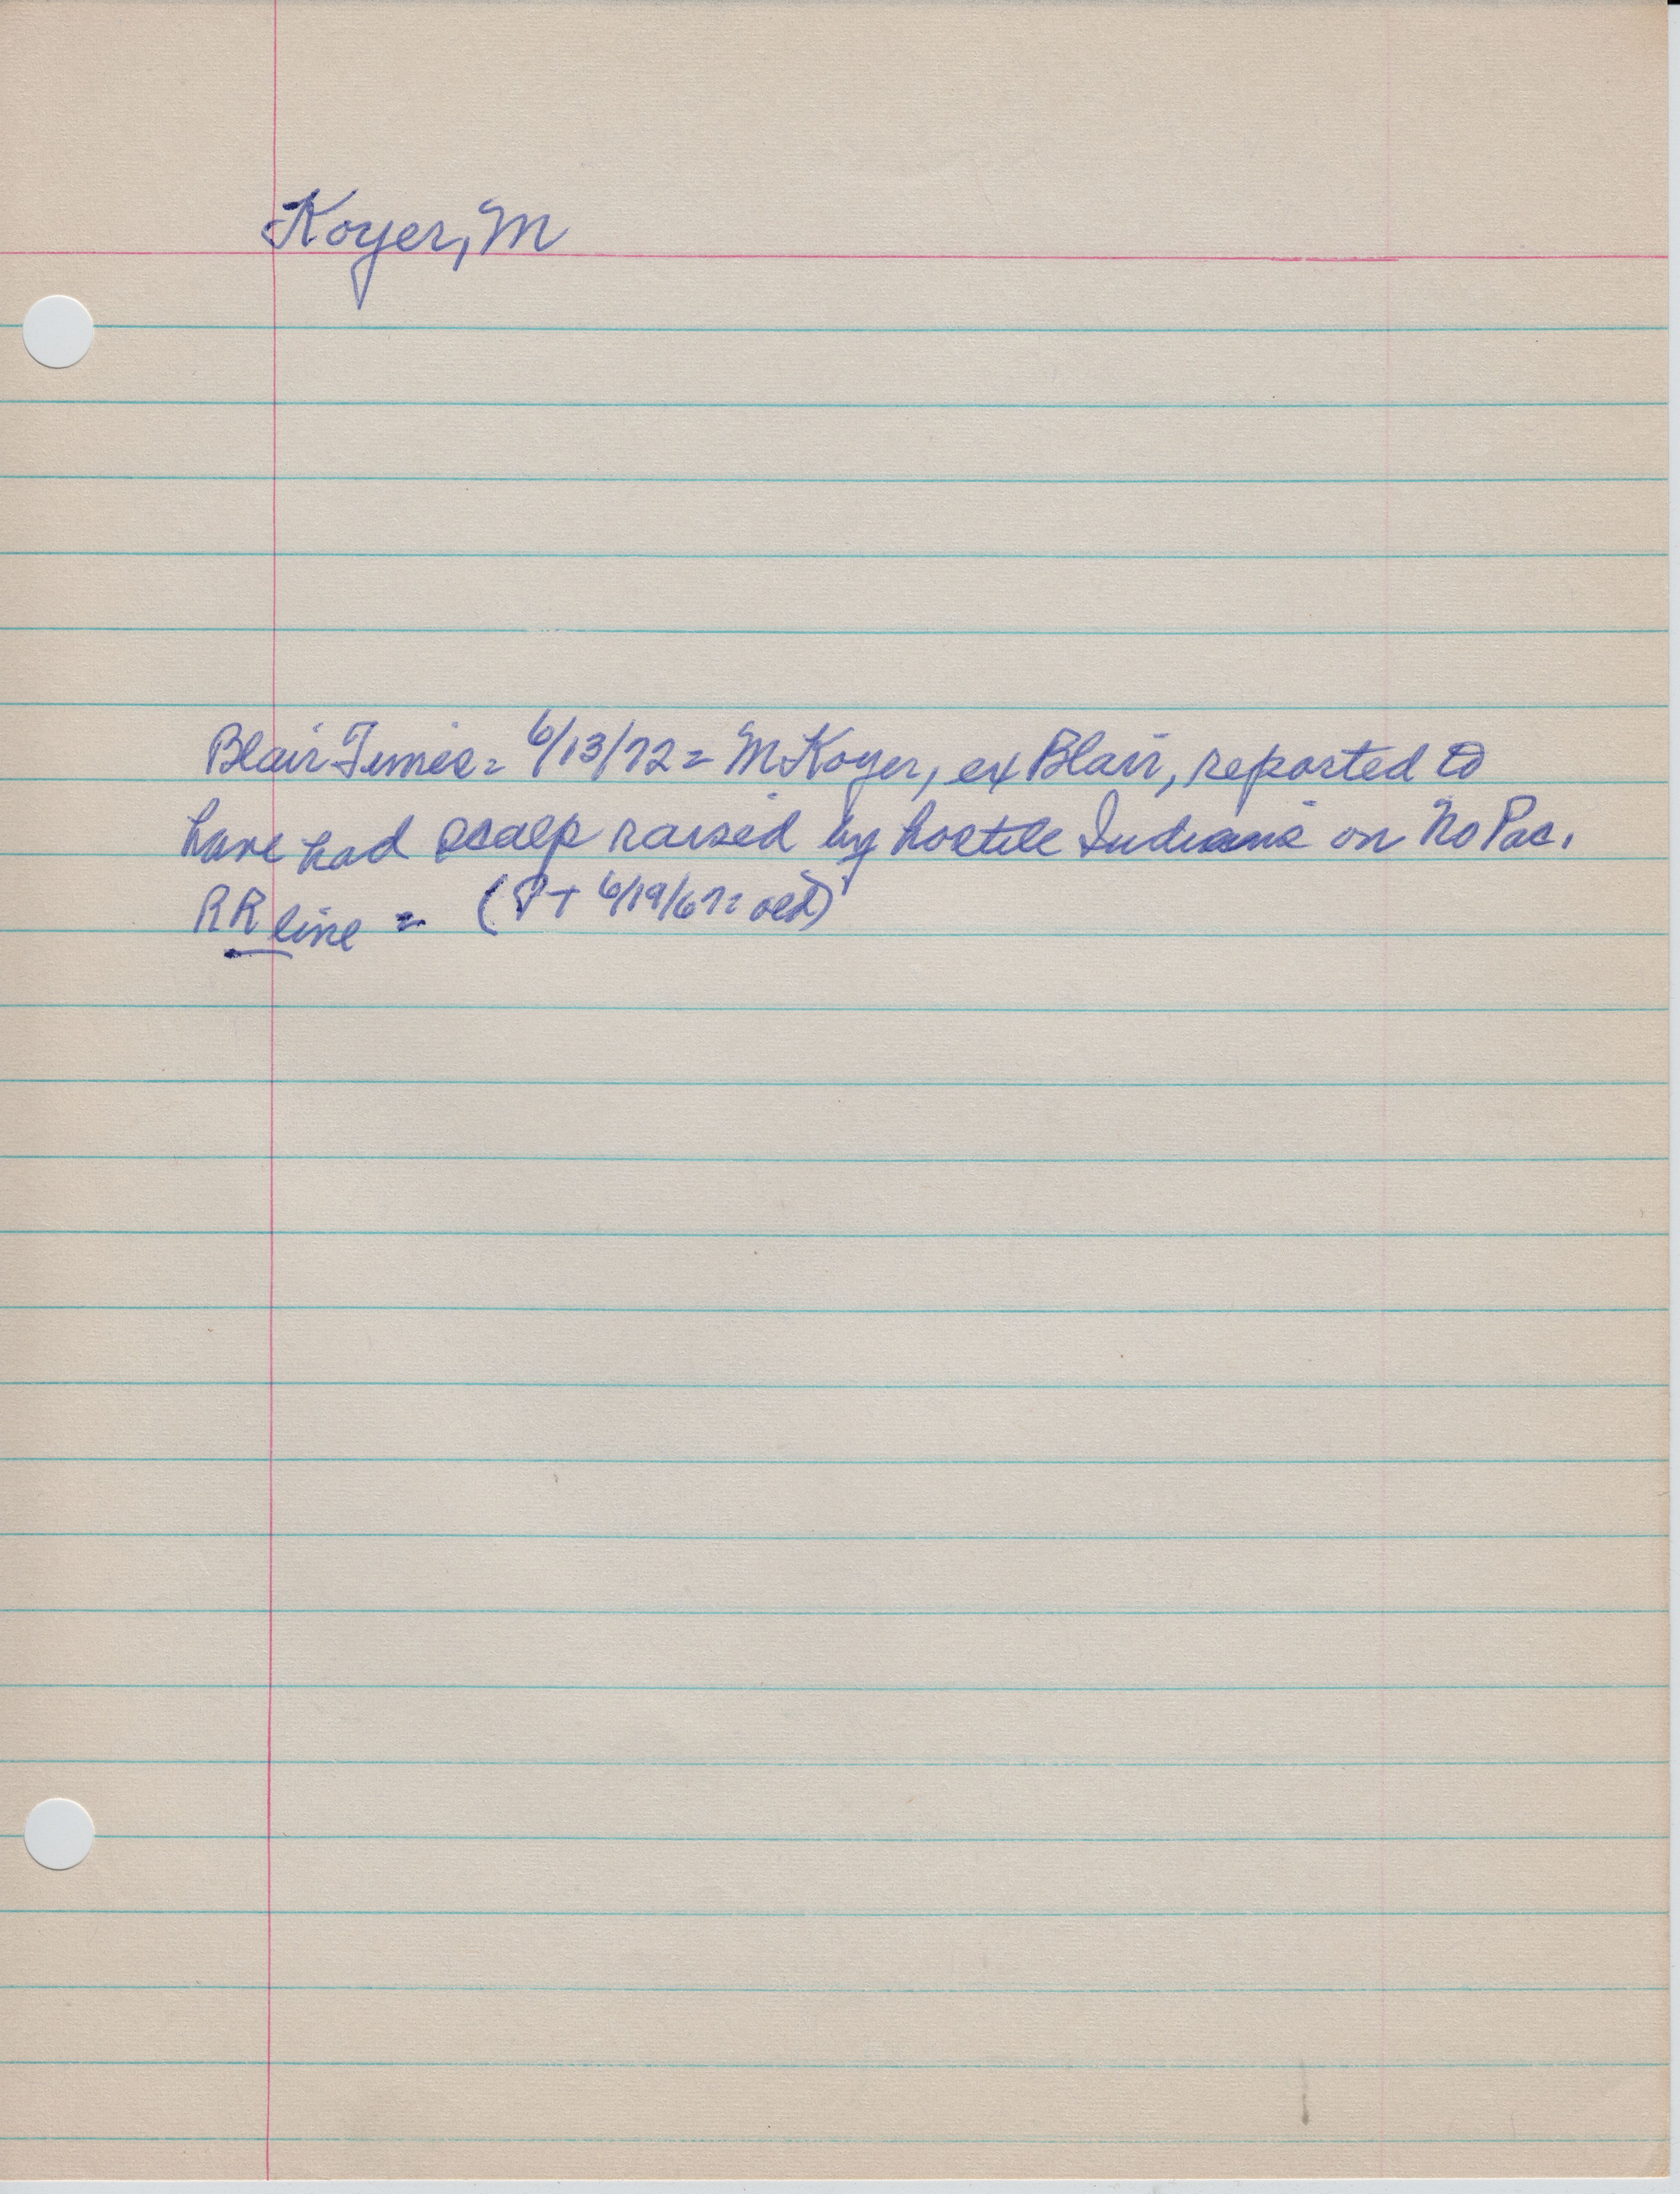 Koyer, M
Blair Times = 6/13/72 = M Koyer, ex Blair, reported to
have had scalp raised by hostile Indians on No Pac.
RR line = (PT 6/19/67: old)